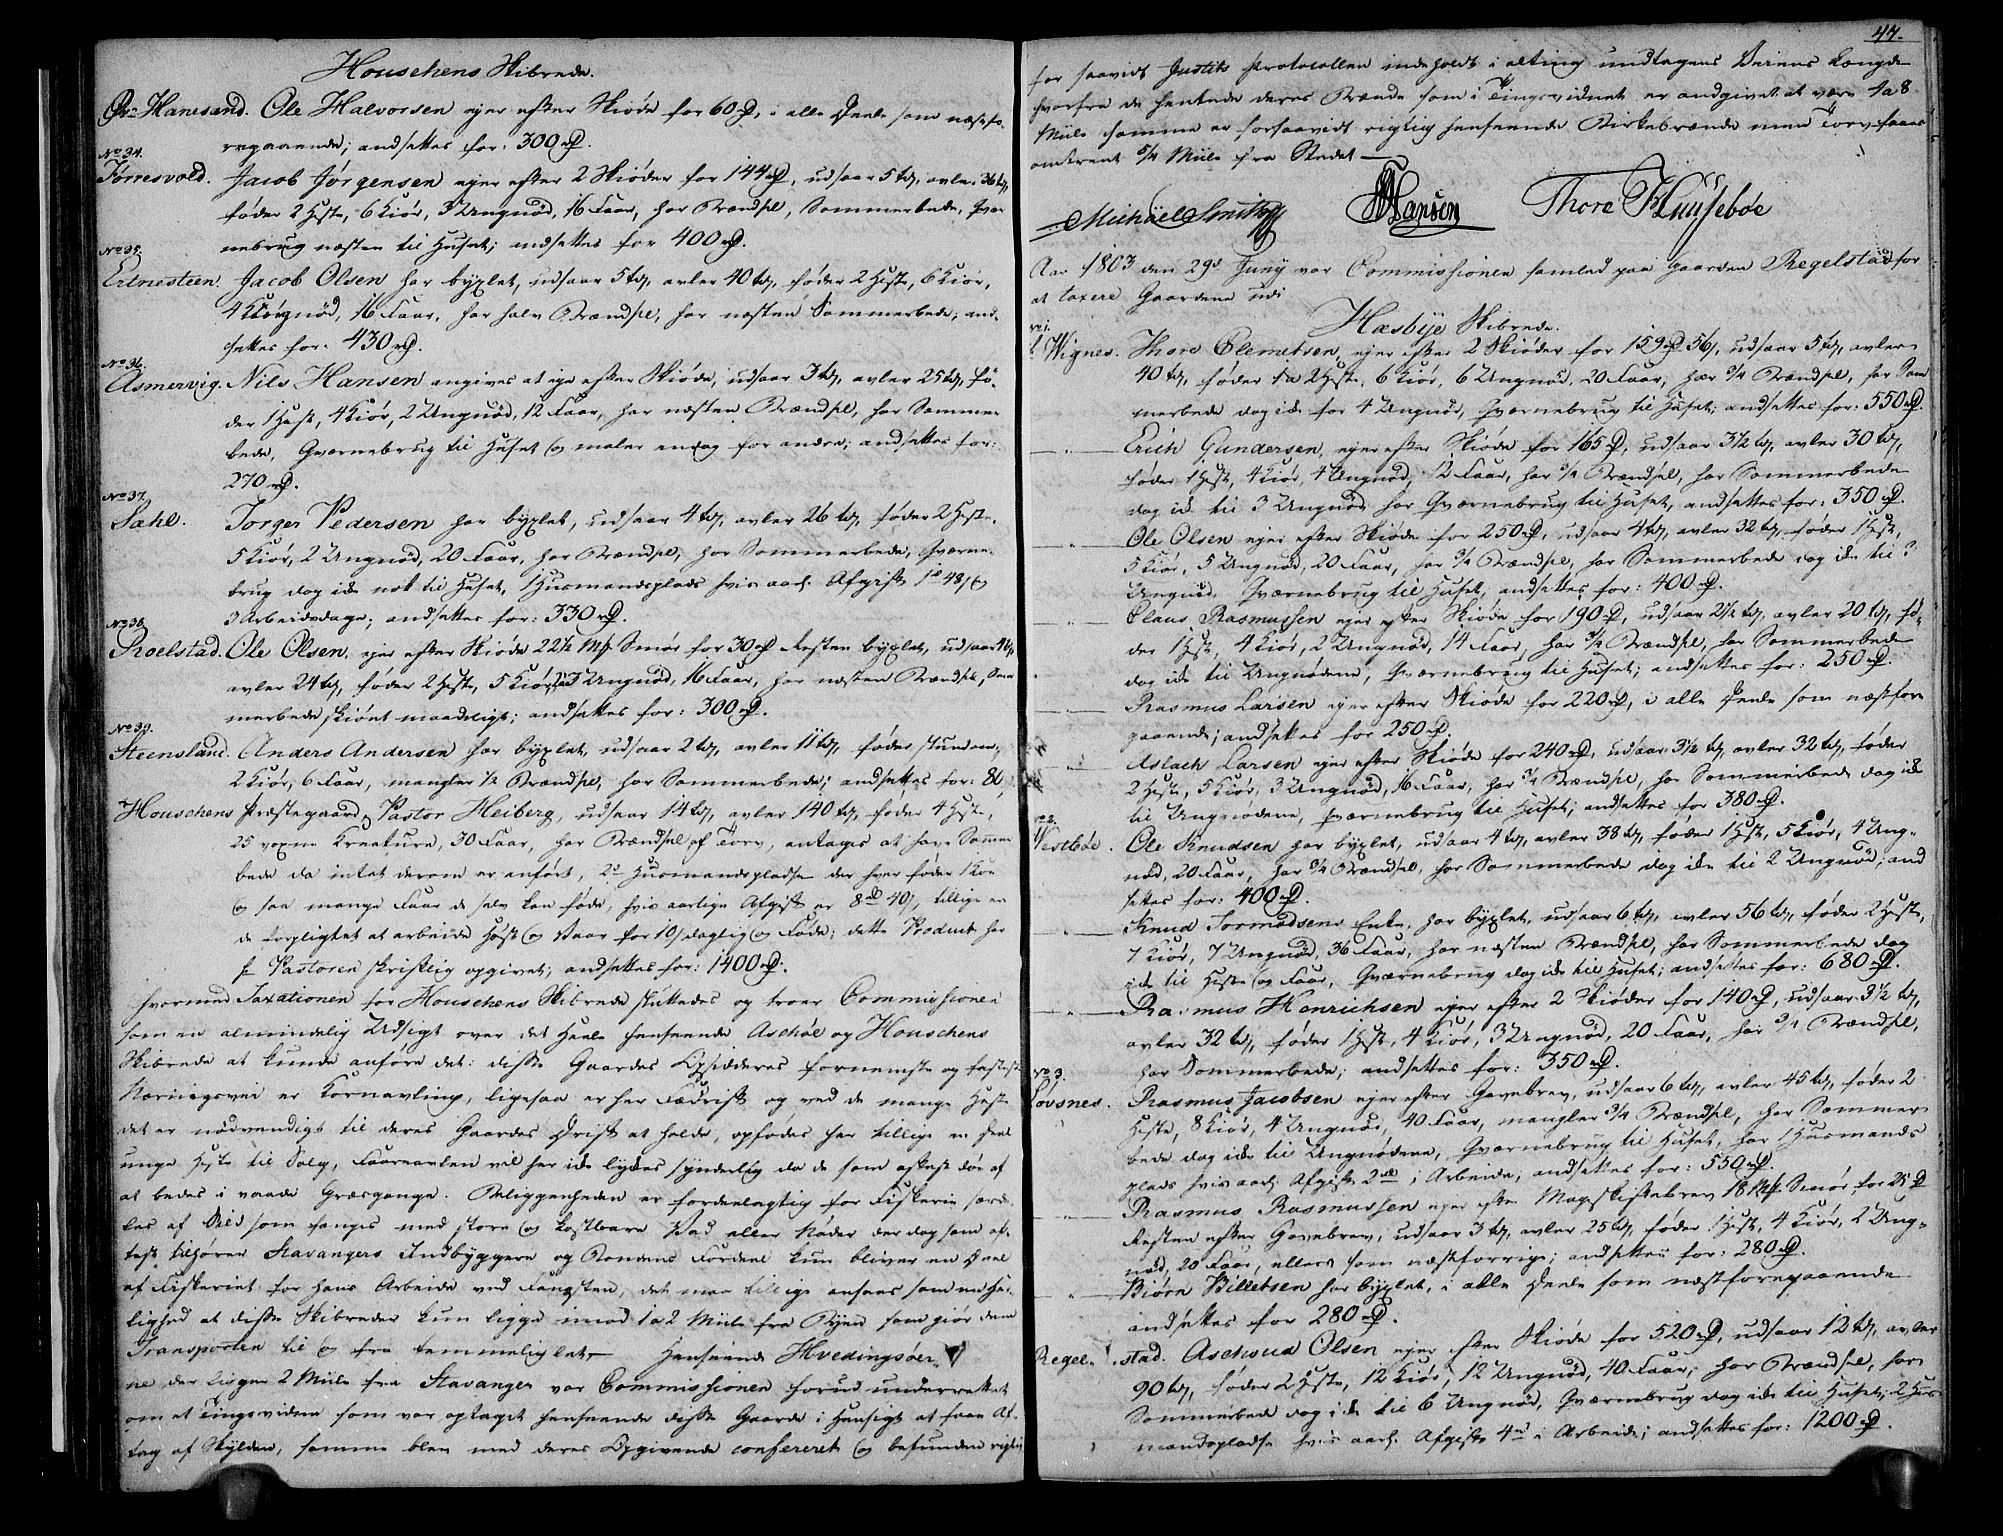 Houschens Skibrede.
Pr. Hanesand. Ole Halvorsen ejer efter Skiøde for 60 rd, i alle Deele som næstfo-
regaaende; andsettes for: 300 rd.
No 34.
Torresvold. Jacob Jørgensen ejer efter 2 Skiøder for 144 rd, udsaar 5 td, avler 36 td,
føder 2 Heste, 6 Kiør, 3 Ungnød, 16 Faar, har Brændsel, Sommerbede, Qvær-
nebrug næsten til Huset; andsettes for 400 rd.
No 35.
Ertnesteen. Jacob Olsen har byxlet, udsaar 5 td, avler 40 td, føder 2 Heste, 6 Kiør,
4 Ungnød, 16 Faar, har halv Brændsel, har næsten Sommerbede; and-
settes for: 430 rd.
No 36.
Asmervig. Nils Hansen angives at eje efter Skiøde, udsaar 3 td, avler 25 td, fø-
der 1 Hest, 4 Kiør, 2 Ungnød, 12 Faar, har næsten Brændsel, har Sommer-
bede, Qværnebrug til Huset og maler endog for andre; andsettes for:
270 rd.
No 37.
Sahl. Torger Pedersen har byxlet, udsaar 4 td, avler 26 td, føder 2 Heste,
5 Kiør, 2 Ungnød, 20 Faar, har Brændsel, har Sommerbede, Qværne-
brug dog ikke nok til Huset, 1 Husmandsplads hvis aarl. Afgift 1 rd 48 s og
3 Arbeidsdage; andsettes for: 330 rd.
No 38.
Roelstad. Ole Olsen, ejer efter Skiøde 22½ Mk Smør for 30 rd Resten byxlet, udsaar 4 td,
avler 24 td, føder 2 Heste, 5 Kiør, 3 Ungnød, 16 Faar, har næsten Brændsel, Som-
merbede skiønt maadeligt; andsettes for: 300 rd.
No 39.
Steensland. Anders Andersen har byxlet, udsaar 2 td, avler 11 td, føder stundom
2 Kiør, 6 Faar, mangler ½ Brændsel, har Sommerbede; andsettes for: 80
Houschens Præstegaard, Pastor Heiberg, udsaar 14 td, avler 140 td, føder 4 Heste,
25 voxne Kreature, 30 Faar, har Brændsel af Torv, antages at have Sommer-
bede da intet derom er anført, 2de Husmandspladse der hver føder 1 Koe
og saa mange Faar de selv kan føde, hvis aarlige Afgift er 8 rd 40 s, tillige er
de forpligtet at arbeide Høst og Vaar for 10 s daglig og Føde; dette Product har
hr Pastoren skriftlig opgivet; andsettes for: 1400 rd.
Hvormed Taxationen for Houschens Skibrede sluttedes og troer Commissionen
som en almindelig Udsigt over det Heele henseende Aschøe og Houschens
Skibrede at kunde anføre det: disse Gaardes Opsidderes fornemste og fasteste
Næringsvei er Kornavling, ligesaa er her Fædrift og ved de mange Heste
det er nødvendigt til deres Gaardes Drift at holde, opfødes her tillige en Deel
unge Heste til Salg, Faareavlen vil her ikke lykkes synderlig da de som oftest døe af
at bedes i vaade Græsgange. Beliggenheden er fordeelagtig for Fiskerie sær de-
les af Sild som fanges med store og kostbare Vad eller Nøder der dog som of-
test tilhører Stavangers Indbyggere og Bondens Fordeel kun bliver en Deel
af Fiskeriet for hans Arbeide ved Fangsten, det maa tillige ansees som en Her-
lighed at disse Skibreder kun ligge imod 1 a 2 Miile fra Byen som giør dem
Transporten til og fra temmelig let — Henseende Hvedingsøer-
ne der ligger 2 Miile fra Stavanger var Commissionen forud underrettet
om et Tingsvidne som var optaget henseende disse Gaarde i Hensigt at faae Af-
tag af Skylden, samme blev med deres Opgivende confereret og befunden rigtig
44.
for saavidt Justits Protocollen indeholdt i alting undtagens Veiens Længde
hvorfra de hentede deres Brænde som i Tingsvidnet er andgivet at være 7 a 8
Miile samme er forsaavidt rigtig henseende Birkebrænde men Torv faaes
omtrent 5/4 Miile fra Stedet —
Michael Smith Hansen Thore Huusebøe
Aar 1803 den 29de Juny var Commissionen samled paa gaarden Regelstad for
at taxere Gaardene udi
Hæsbye Skibrede.
No 1.
Wignes. Thore Clemetsen, ejer efter 2 Skiøder for 159 rd 56 s, udsaar 5 td, avler
40 td, føder 1 a 2 Heste, 6 Kiør, 6 Ungnød, 20 Faar, har ¾ Brændsel, har Som-
merbede dog ikke for 4 Ungnød, Qværnebrug til Huset; andsettes for: 550 rd.
—„— Erich Gundersen, ejer efter Skiøde for 165 rd, udsaar 3½ td, avler 30 td,
føder 1 Hest, 4 Kiør, 4 Ungnød, 12 Faar, har ¾ Brændsel, har Sommerbede
dog ikke til 3 Ungnød har Qværnebrug til Huset, andsettes for: 350 rd.
—„— Ole Olsen ejer efter Skiøde for 250 rd, udsaar 4 td, avler 32 td, føder 1 Hest,
5 Kiør, 5 Ungnød, 20 Faar, har ¾ Brændsel, har Sommerbede dog ikke til 3
Ungnød, Qværnebrug til Huset, andsettes for: 400 rd.
—„— Claus Rasmussen ejer efter Skiøde for 190 rd, udsaar 2½ td, avler 20 td, fø-
der 1 Hest, 4 Kiør, 2 Ungnød, 14 Faar, har ¾ Brændsel, har Sommerbede
dog ikke til Ungnødene, Qværnebrug til Huset; andsettes for: 250 rd.
—„— Rasmus Larsen ejer efter Skiøde for 220 rd, i alle Deele som næstfore-
gaaende; andsettes for 250 rd.
—„— Aslach Larsen ejer efter Skiøde for 240 rd, udsaar 3½ td, avler 32 td, føder
2 Heste, 5 Kiør, 3 Ungnød, 16 Faar, har ¾ Brændsel, har Sommerbede dog ikke
til Ungnødene, Qværnebrug til Huset; andsettes for 380 rd.
No 2.
Vestbøe. Ole Knudsen har byxlet, udsaar 4 td, avler 38 td, føder 1 Hest, 5 Kiør, 4 Ung-
nød, 20 Faar, har ¾ Brændsel, har Sommerbede dog ikke til 2 Ungnød; and-
settes for: 400 rd.
—„— Knud Tormodsens Enke, har byxlet, udsaar 6 td, avler 56 td, føder 2 Heste,
7 Kiør, 7 Ungnød, 36 Faar, har næsten Brændsel, har Sommerbede dog
ikke til Heste og Faar, Qværnebrug dog ikke til Huset; andsettes for: 680 rd.
—„— Rasmus Henrichsen ejer efter 2 Skiøder for 140 rd, udsaar 3½ td,
avler 32 td, føder 1 Hest, 4 Kiør, 3 Ungnød, 20 Faar, har ¾ Brændsel,
har Sommerbede; andsettes for: 350 rd.
No 3.
Lovsnes. Rasmus Jacobsen ejer efter Gavebrev, udsaar 6 td, avler 45 td, føder 2
Heste, 8 Kiør, 4 Ungnød, 40 Faar, mangler ¾ Brændsel, har Sommer-
bede dog ikke til Ungnødene, Qværnebrug til Huset, har 1 Husmands-
plads hvis aarl. Afgift 2 rd i Arbeide, andsettes for: 550 rd.
—„— Rasmus Rasmussen ejer efter Mageskiftebrev 18 Mk Smør for 25 rd
Resten efter Gavebrev, udsaar 3 td, avler 25 td, føder 1 Hest, 4 Kiør, 2 Ung-
nød, 20 Faar, ellers som næstforrige; andsettes for: 280 rd.
—„— Biørn Villetsen har byxlet, i alle Deele som næstforegaaende
andsettes for 280 rd.
Regel-stad. Aschoud Olsen ejer efter Skiøde for 520 rd, udsaar 12 td, avler
90 td, føder 2 Heste, 12 Kiør, 12 Ungnød, 40 Faar, har Brændsel, har
Sommerbede dog ikke til 6 Ungnød, Qværnebrug dog ikke til Huset; 2 Hus-
mandspladse hvis aarl. Afgift 4 rd i Arbeide; andsettes for: 1200 rd.